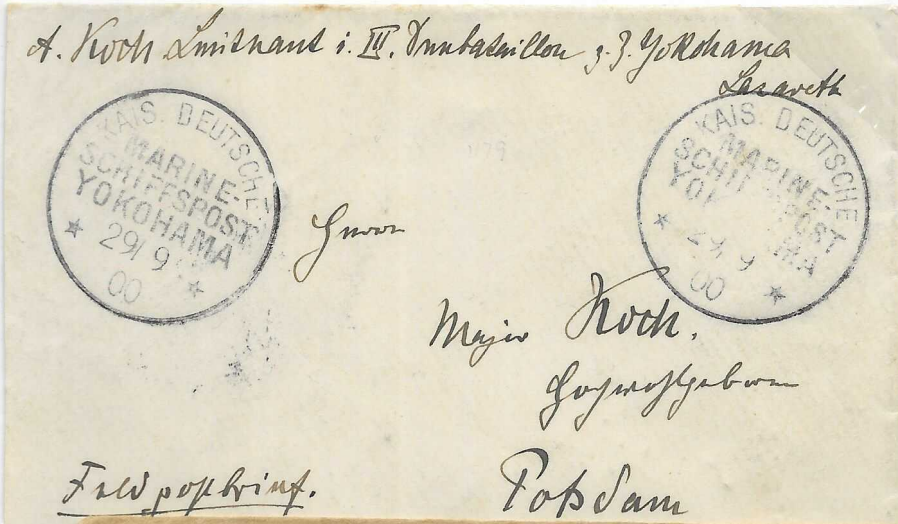 A. Koch Leutnant i. III. Seebataillon z. Z. Yokohama
Lazareth
KAIS. DEUTSCHE
MARINE-
SCHIFFSPOST
YOKOHAMA
29/9
00
KAIS. DEUTSCHE
MARINE-
SCHI POST
YO MA
29/9
00
Herrn
Major Koch.
Hochwohlgeboren
Potsdam
Feldpostbrief.